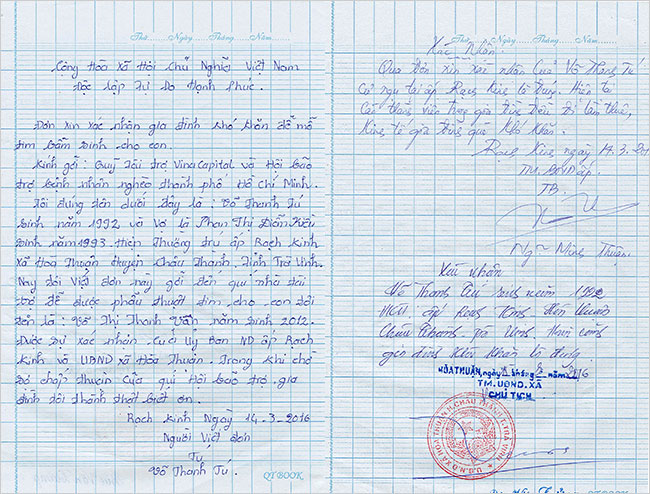 Thứ......Ngày......Tháng......Năm......
Cộng Hòa Xã Hội Chủ Nghĩa Việt Nam
Độc Lập Tự Do Hạnh Phúc.
Đơn xin xác nhận gia đình khó khăn để mổ
tim bẩm sinh cho con.
Kính gởi: Quỹ Tài trợ VinaCapital và Hội bảo
trợ bệnh nhân nghèo thành phố Hồ Chí Minh.
Tôi đứng đơn dưới đây là: Võ Thanh Tú
Sinh năm 1992 và vợ là Phan Thị Diễm Kiều
Sinh năm 1993. Hiện Thường trụ ấp Rạch Kinh
xã Hòa Thuận Huyện Châu Thành, Tỉnh Trà Vinh.
Nay tôi Viết đơn này gởi đến quí nhà tài
trợ để được phẩu thuật tim cho con tôi
tên là: Võ Thị Thanh Vân năm Sinh 2012.
Được sự xác nhận của Ủy Ban ND ấp Rạch
Kinh và UBND xã Hòa Thuận. Trong khi chờ
đợi chấp thuận của quí Hội bảo trợ gia
đình tôi Thành thật biết ơn.
Rạch Kinh Ngày 14-3-2016
Người Viết đơn
Tú
Võ Thanh Tú.
QT BOOK
Thứ......Ngày......Tháng......Năm......
Xác Nhận
Qua Đơn xin xác nhận của Võ Thanh Tú
Có ngụ tại ấp Rạch Kinh là đúng. Hiện là
thành viên trong gia đình Đều Đi làm thuê,
Kinh tế gia đình quá khó khăn.
Rạch Kinh, ngày 14.3.201
TM. BND ấp.
TB.
Ng~ Minh Thuận
Xác nhận
Võ Thanh Tú sinh năm 1992
Hòa Thuận
Châu Thành
gia đình khó khăn là đúng.
HÒA THUẬN, ngày tháng 3 năm 2016
TM. UBND. XÃ
CHỦ TỊCH
U.B.N.D XÃ HÒA THUẬN H. CHÂU THÀNH T. TRÀ VINH
QT BOOK